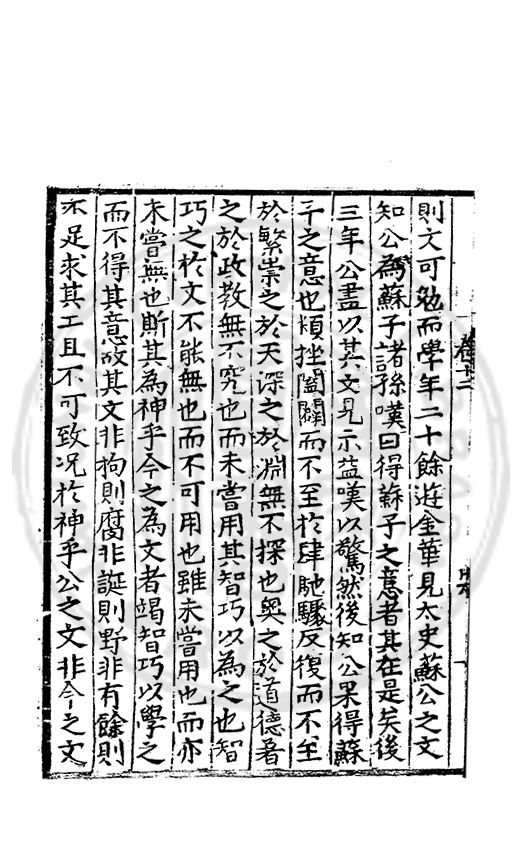 則文可勉而學年二十餘遊金華見太史蘇公之文
知公為蘇子諸孫嘆曰得蘇子之意者其在是矣後
三年公盡以其文見示益嘆以驚然後知公果得蘇
子之意也頓挫闔闢而不至於肆馳驟反復而不至
於繁崇之於天深之於淵無不探也奧之於道德著
之於政教無不究也而未嘗用其智巧以為之也智
巧之於文不能無也而不可用也雖未嘗用也而亦
未嘗無也斯其為神乎今之為文者竭智巧以學之
而不得其意故其文非拘則腐非誕則野非有餘則
不足求其工且不可致况於神乎公之文非今之文
卷十二